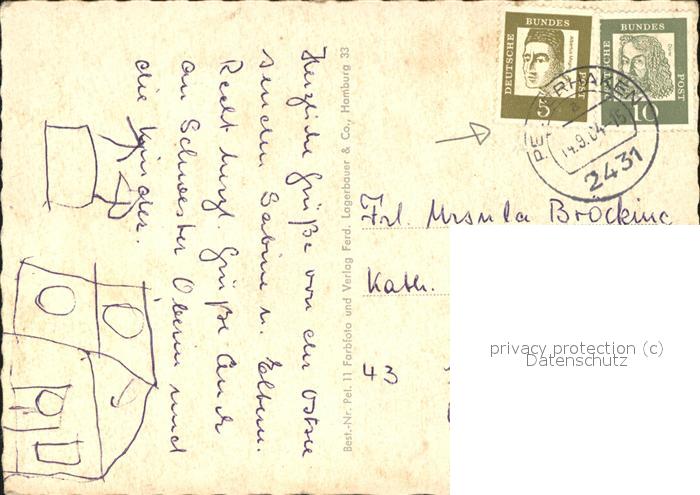 Herzliche Grüße von der Ostsee
senden Sabine u. Eltern.
Recht herzl. Grüße auch
an Schwester Oberin und
die Kinder.
Best.-Nr. Pel. 11 Farbfoto und Verlag Ferd. Lagerbauer & Co., Hamburg 33
DEUTSCHE BUNDES POST
5
DEUTSCHE BUNDES POST
10
14.9.64-15
2431
Frl. Ursula Brocking
Kath.
43
privacy protection (c)
Datenschutz